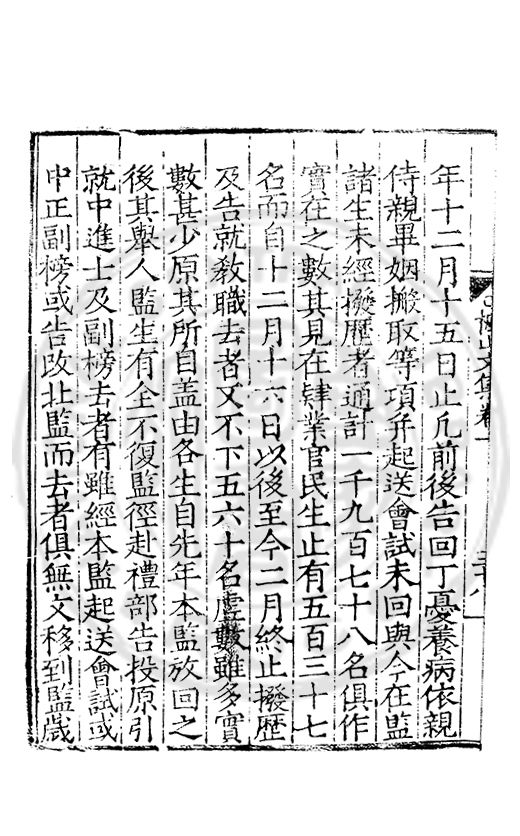 年十二月十五日止凡前後告回丁憂養病依親
侍親畢姻搬取等項并起送會試未回與今在監
諸生未經撥歷者通計一千九百七十八名俱作
實在之數其見在肄業官民生止有五百三十七
名而自十二月十六日以後至今二月終止撥歷
及告就教職去者又不下五六十名虛數雖多實
數甚少原其所自盖由各生自先年本監放回之
後其舉人監生有全不復監徑赴禮部告投原引
就中進士及副榜去者有雖經本監起送會試或
中正副榜或告改北監而去者俱無文移到監歲
山文集卷一
三十八